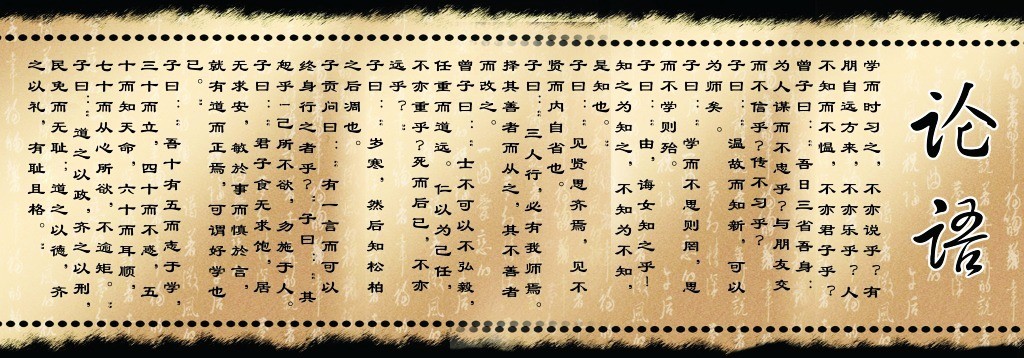 论语
学而时习之，不亦说乎？有
朋自远方来，不亦乐乎？人
不知而不愠，不亦君子乎？
曾子曰：“吾日三省吾身：
为人谋而不忠乎？与朋友交
而不信乎？传不习乎？
子曰：“温故而知新，可以
为师矣。
子曰：“学而不思则罔，思
而不学则殆。
子曰：“由，诲女知之乎！
知之为知之，不知为不知，
是知也。”
子曰：“见贤思齐焉，见不
贤而内自省也。
子曰：“三人行，必有我师焉。
择其善者而从之，其不善者
而改之。
曾子曰：“士不可以不弘毅，
任重而道远。仁以为己任，
不亦重乎？死而后已，不亦
远乎？”
子曰：“岁寒，然后知松柏
之后凋也。
子贡问曰：“有一言而可以
终身行之者乎？”子曰：“其
恕乎—己所不欲，勿施于人。
子曰：“君子食无求饱，居
无求安，敏於事而慎於言，
就有道而正焉，可谓好学也
已。”
子曰：“吾十有五而志于学，
三十而立，四十而不惑，五
十而知天命，六十而耳顺，
七十而从心所欲，不逾矩。”
子曰：“道之以政，齐之以刑，
民免而无耻；道之以德，齐
之以礼，有耻且格。”